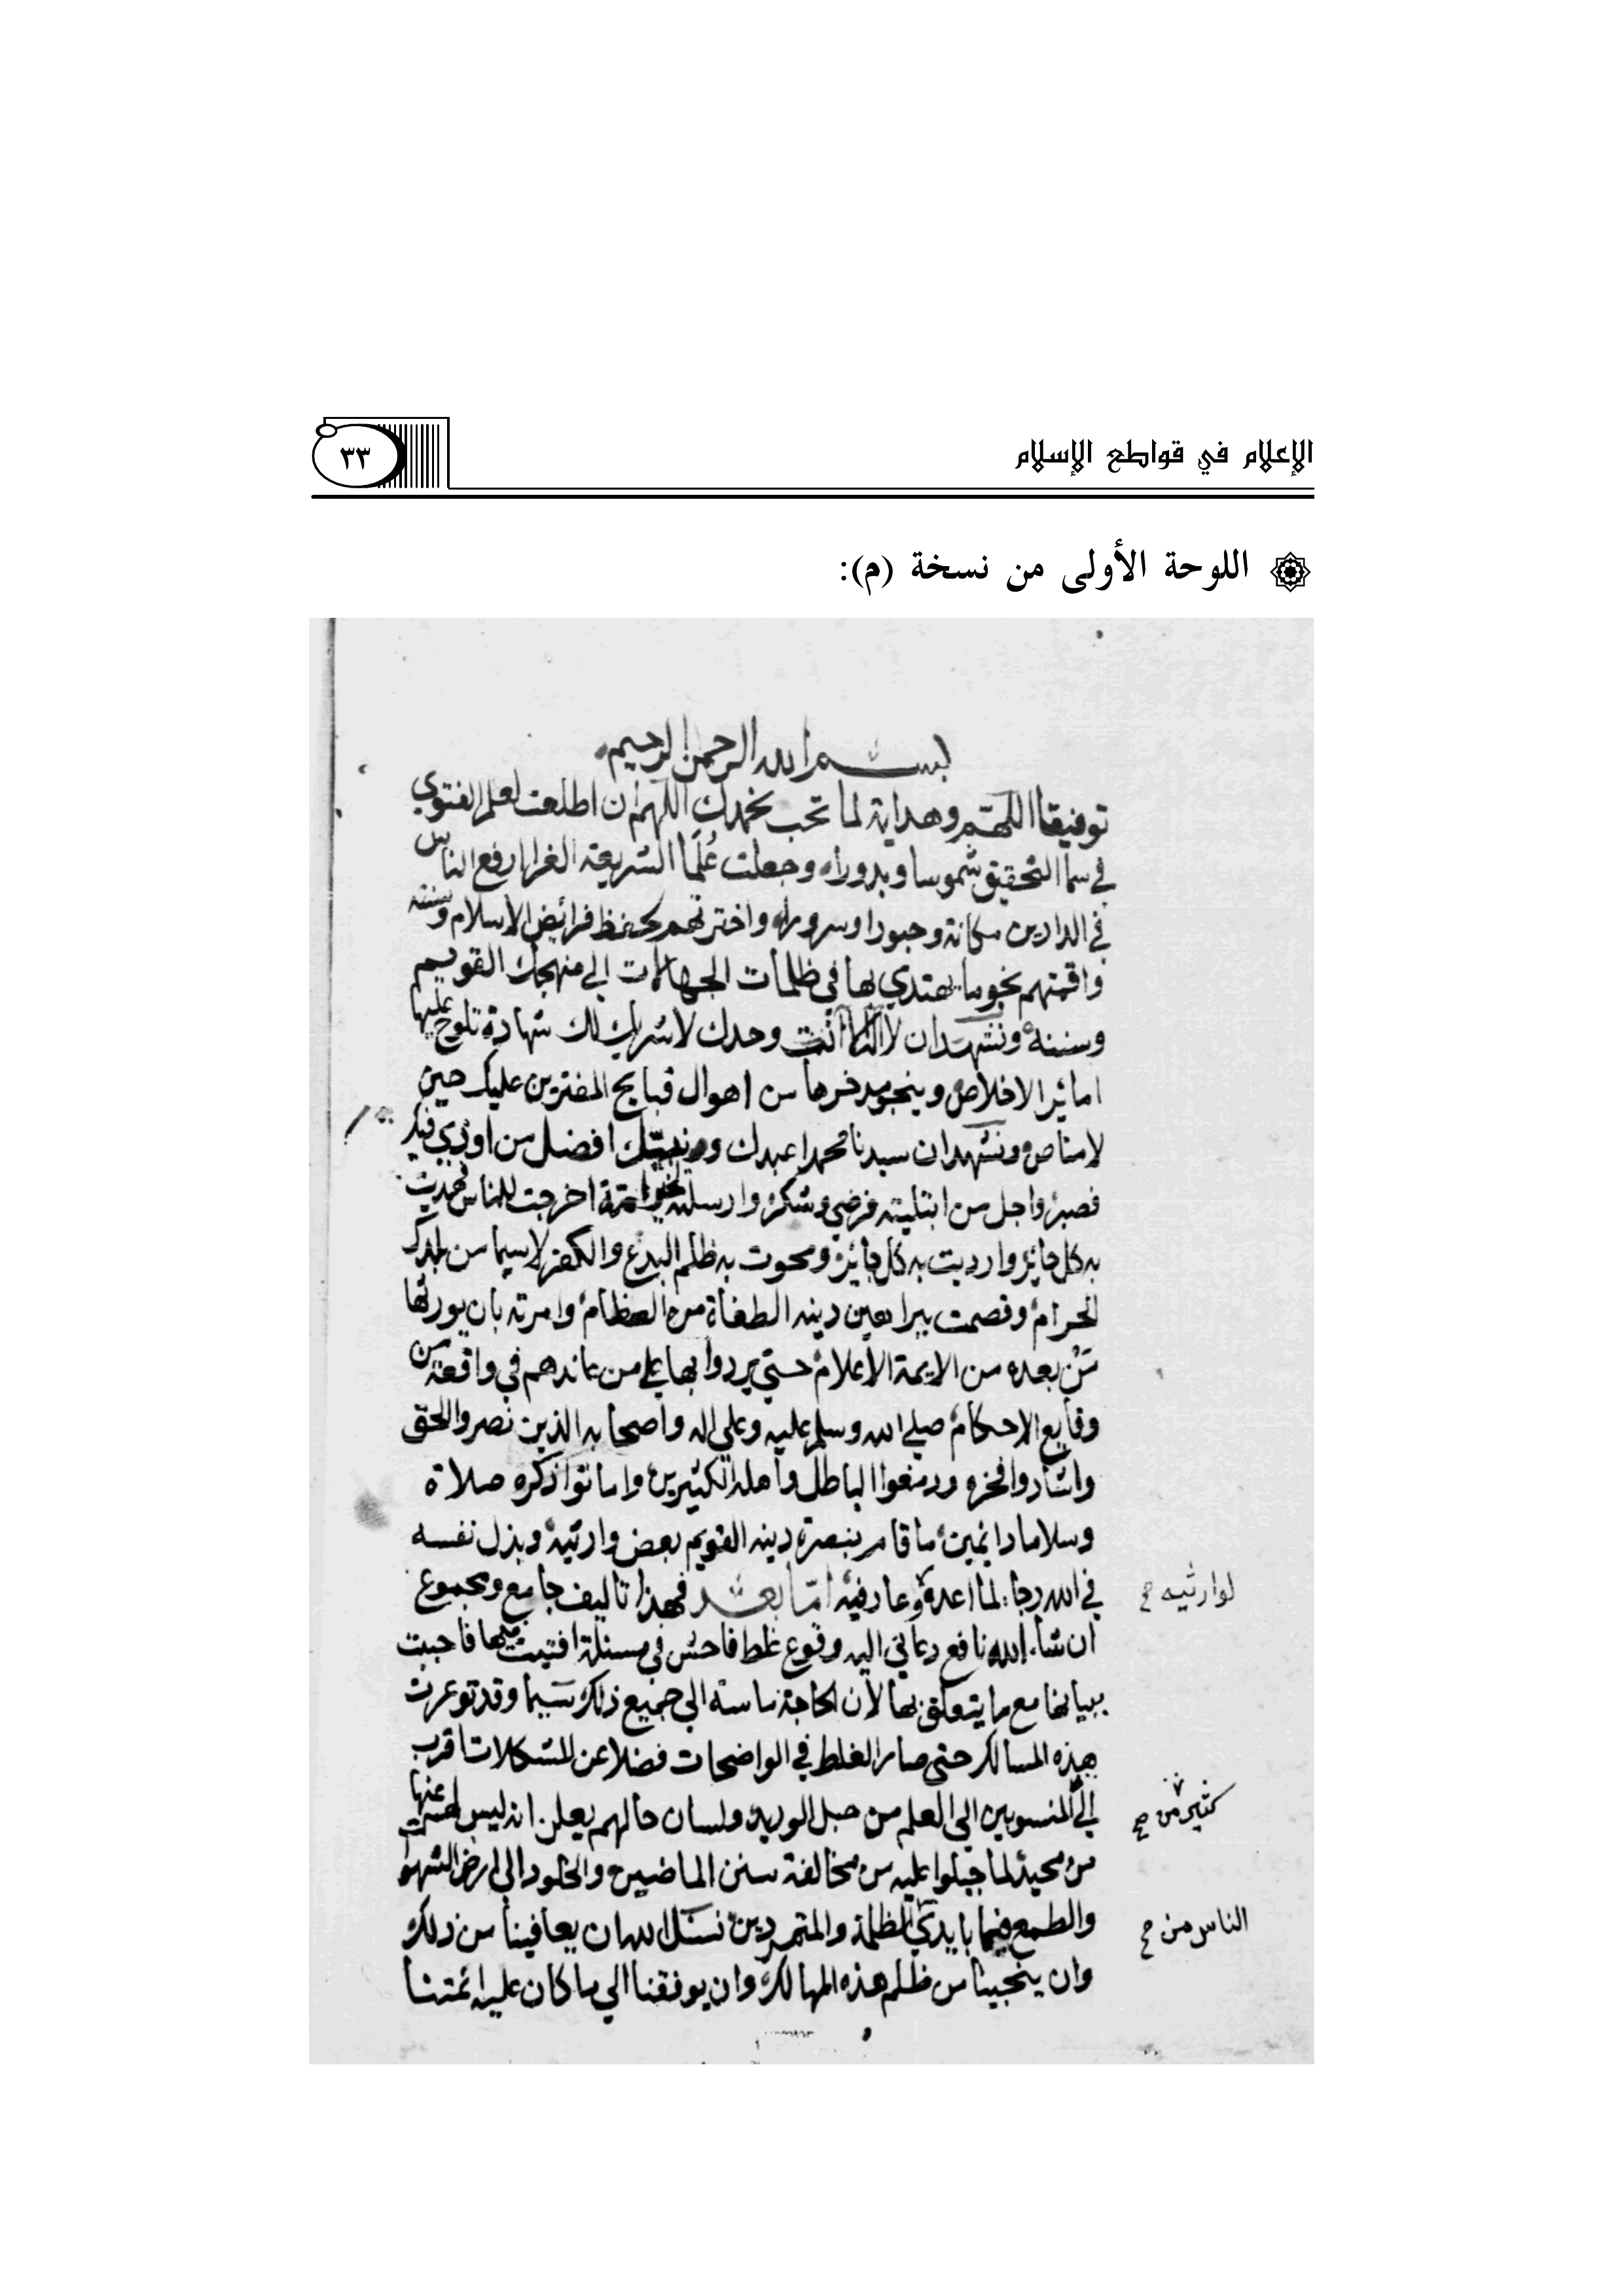 الإعلام في قواطع الإسلام
٣٣
اللوحة الأولى من نسخة (م):
بسم الله الرحمن الرحيم
توفيقا اللهم وهداية لما تحب نحمدك اللهم ان اطلعت لعلم الفتوي
في سما التحقيق شموسا وبدورا وجعلت علما الشريعة الغرا ارفع الناس
في الدارين مكانة وحبورا وسرورا واخترتهم لحفظ فرائض الاسلام وسننه
واقمتهم نجوما يهتدي بها في ظلمات الجهالات الي منهجك القويم
وسننه ونشهد ان لا اله الا انت وحدك لا شريك لك شهادة تلوح عليها
اماير الاخلاص وينجو مدخرها من اهوال قبايح المفترين عليك حين
لا مناص ونشهد ان سيدنا محمدا عبدك ونبيك افضل من اوذي فيك
فصبر واجل من ابتليته فرضي وشكر وارسلته امة اخرجت للناس
به كل حايز وارديت به كل جايز ومحوت به ظلم البدع والكفر لا سيما من بلدك
الحرام وقصمت ببراهين دينه الطغاة مره العظام وامرته بان يورثها
من بعده من الايمة الاعلام حتي يردوا بها علي من عاندهم في واقعة من
وقايع الاحكام صلي الله وسلم عليه وعلي اله واصحابه الذين نصروا الحق
واشادوا فخره ودمغوا الباطل واهله الكثيرين واماتوا ذكره صلاة
وسلاما دايمين ما قام بنصرة دينه القويم بعض وارثيه وبذل نفسه
في الله رجا لما اعده وعارفيه اما بعد فهذا تاليف جامع ومجموع
لوارثيه ح
ان شا الله نافع دعاني اليه وقوع غلط فاحش في مسئلة افتيت فيها فاجبت
ببيانها مع ما يتعلق بها لان الحاجة ماسة الي جميع ذلك سيما وقد توعرت
هذه المسالك حتي صار الغلط في الواضحات فضلا عن المشكلات اقرب
الي المنسوبين الي العلم من حبل الوريد ولسان حالهم يعلن انه ليس لهم عنها
كثير من ح
من محيد لما جبلوا عليه من مخالفة سنن الماضين والخلود الي ارض الشهوات
والطمع فيما بايدي الظلمة والمتمردين نسئل الله ان يعافينا من ذلك
الناس من ح
وان ينجينا من ظلم هذه المهالك وان يوفقنا الي ما كان عليه ائمتنا